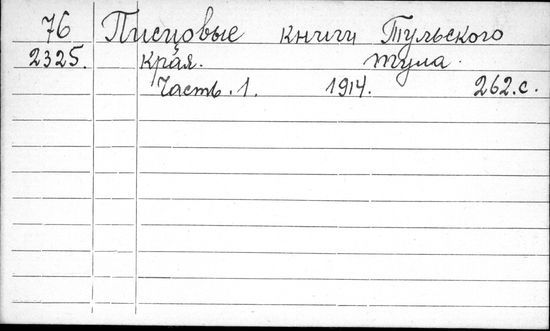 76 Писцовые книги Тульского
2325. края. Тула.
Часть. 1. 1914. 262.с.